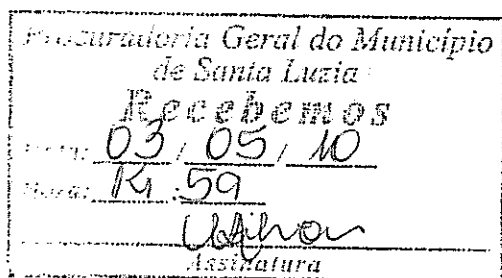 Procuradoria Geral do Município
de Santa Luzia
Recebemos
Data: 03 / 05 / 10
Hora: :59
Assinatura